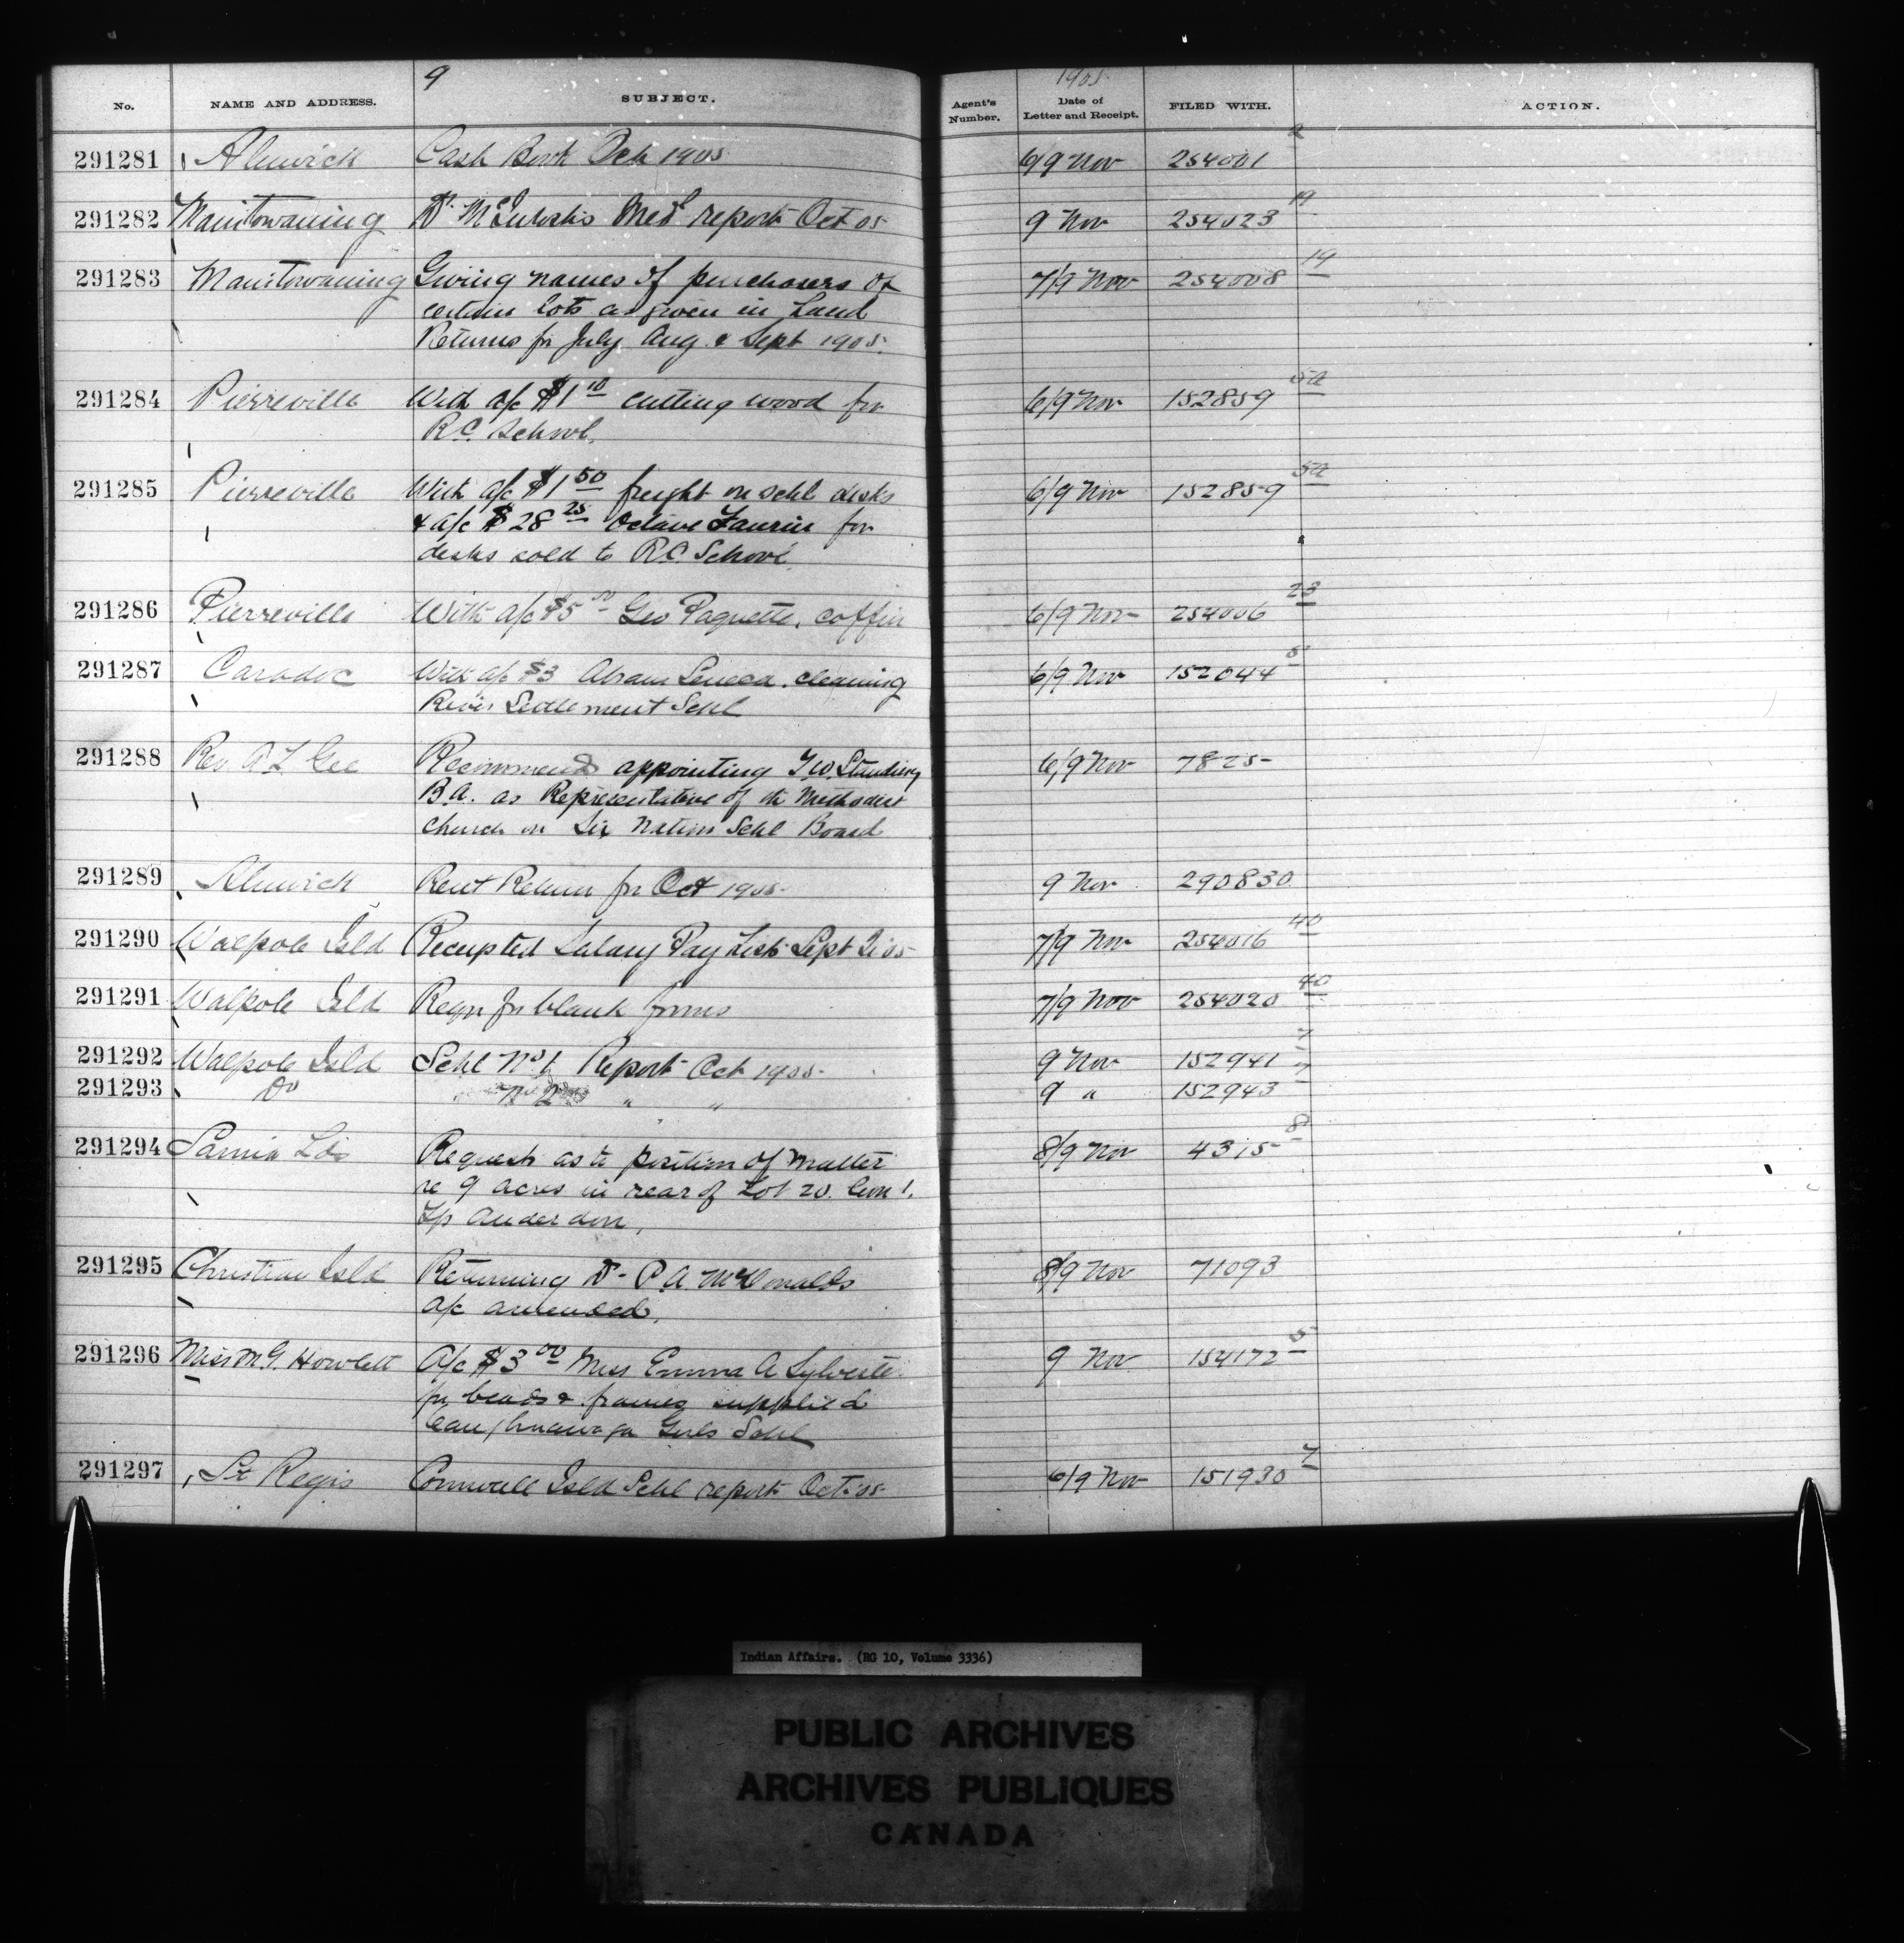 9
1905
No. NAME AND ADDRESS. SUBJECT. Agent's Number. Date of Letter and Receipt. FILED WITH. ACTION.
291281 Alnwick Cash Book Oct 1905 6/9 Nov 254001 2
291282 Manitowaning Dr. McIntosh's Med report Oct 05 9 Nov 254023 19
291283 Manitowaning Giving names of purchasers of 7/9 Nov 254008 19
certain lots as given in Land
Returns for July Aug & Sept 1905.
291284 Pierreville With a/c $1 10 cutting wood for 6/9 Nov 152859 5a
R.C. School.
291285 Pierreville With a/c $1 50 freight on schl desks 6/9 Nov 152859 5a
& a/c $28 25 Octave for
desks sold to R.C. School
291286 Pierreville With a/c $5 00 Geo Paquette, coffin 6/9 Nov 254006 23
291287 Caradoc With a/c $3 Abram Seneca. cleaning 6/9 Nov 152044 5
River Settlement Schl
291288 Rev A L Gee Recommends appointing Standing 6/9 Nov 7825
B.A. as Representative of the Methodist
Church on Six Nation Schl Board
291289 Alnwick Rent Return for Oct 1905 9 Nov 290830
291290 Walpole Isld Receipted Salary Pay List Sept 05 7/9 Nov 254016 40
291291 Walpole Isld Reqn for blank forms 7/9 Nov 254020 40
291292 Walpole Isld Schl No 1 Report Oct 1905 9 Nov 152941 7
291293 Do No 2 " " 9 " 152943 7
291294 Sarnia Request as to position of matter 8/9 Nov 4315 8
re 9 acres in rear of Lot 20. Con 1.
Tp Anderdon,
291295 Christian Isld Returning Dr P.A. McDonalds 8/9 Nov 71093
a/c amended.
291296 Miss M G. Howlett A/c $3 00 Miss Emma A Sylvester 9 Nov 154172 5
for beads & frames supplied
Caughnawaga Girls Schl
291297 St Regis Cornwall Isld Schl report Oct 05 6/9 Nov 151930 7
Indian Affairs. (RG 10, Volume 3336)
PUBLIC ARCHIVES
ARCHIVES PUBLIQUES
CANADA